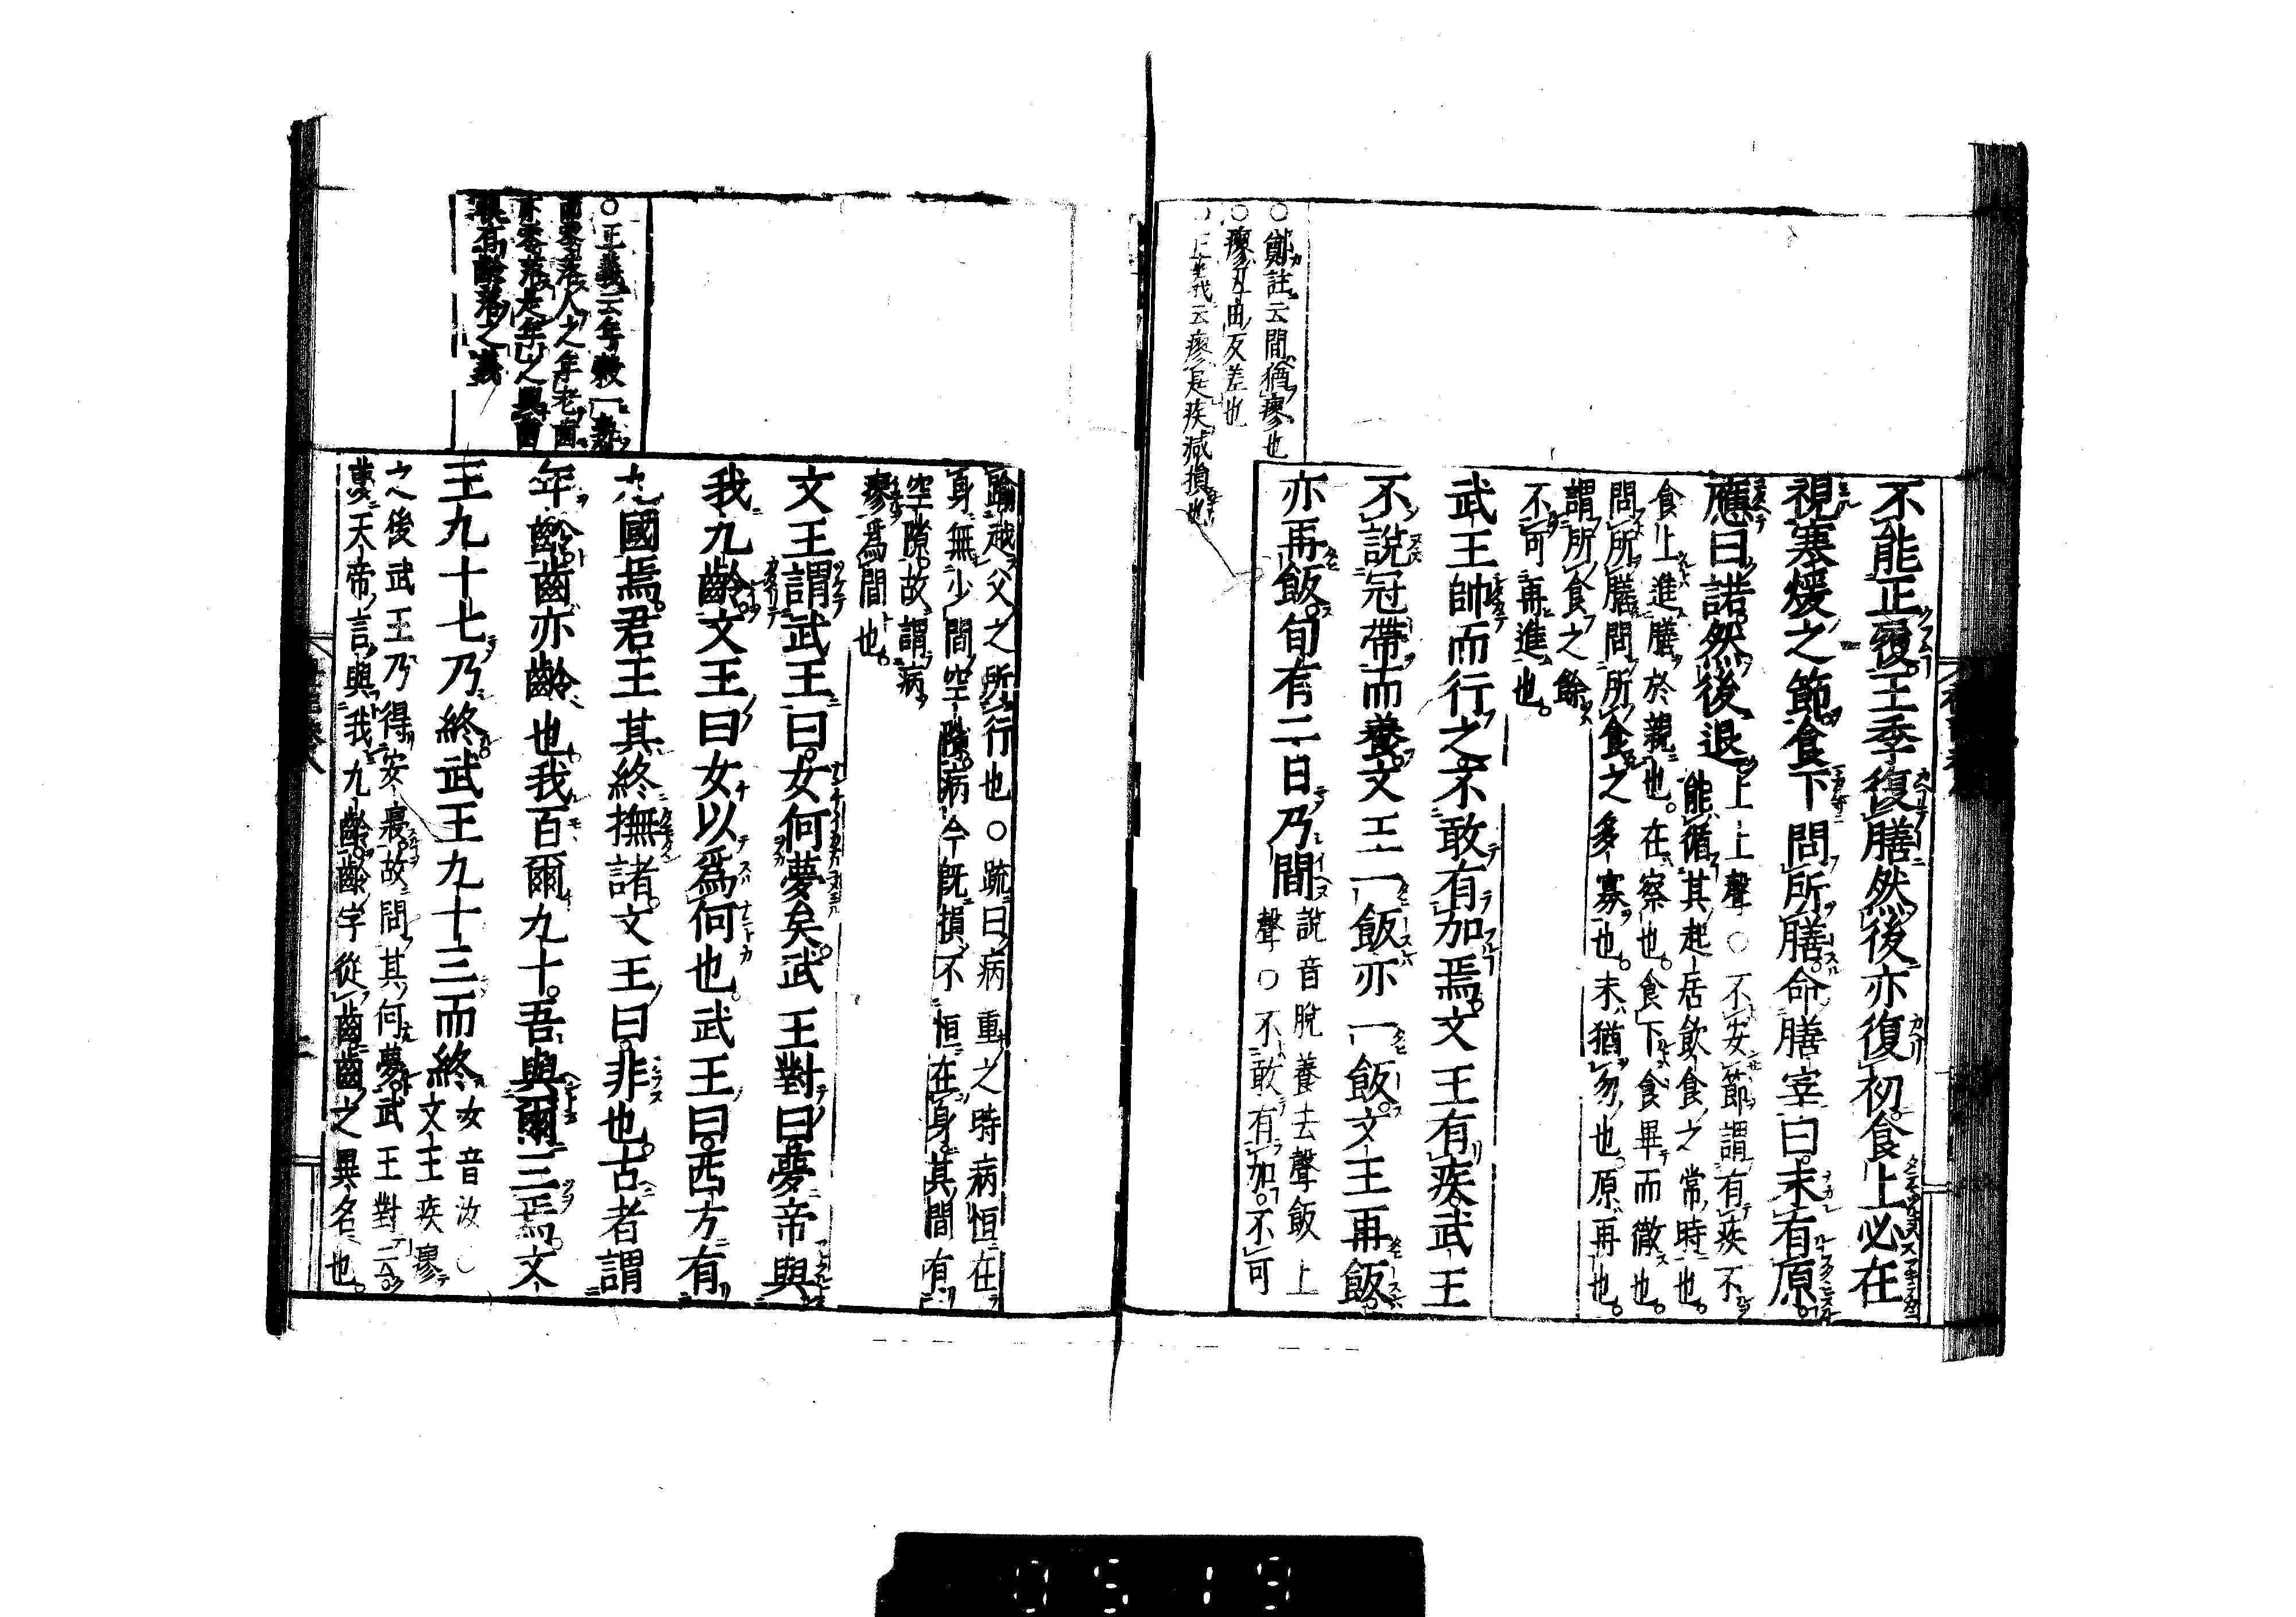 不能正履王季復膳然後亦復初食上必在
視寒煖之節食下問所膳命膳宰曰末有原
應曰諾然後退
上上聲○不安節謂有疾不
能循其起居飲食之常時也
食上進膳於親也在察也食下食畢而徹也
問所膳問所食之多寡也末猶勿也原再也
謂所食之餘
不可再進也
武王帥而行之不敢有加焉文王有疾武王
不說冠帶而養文王一飯亦一飯文王再飯
亦再飯旬有二日乃間
說音脫養去聲飯上
聲○不敢有加不可
○鄭註云間猶瘳也
○瘳丑由反差也
正義云瘳是疾減損也
踰越父之所行也○疏曰病重之時病恒在
身無少間空隙病今既損不恒在身其間有
空隙故謂病
瘳為間也
文王謂武王曰女何夢矣武王對曰夢帝與
我九齡文王曰女以爲何也武王曰西方有
九國焉君王其終撫諸文王曰非也古者謂
年齡齒亦齡也我百爾九十吾與爾三焉文
王九十七乃終武王九十三而終
女音汝○
文王疾瘳
之後武王乃得安寢故問其何夢武王對云
夢天帝言與我九齡齡字從齒齒之異名也
○正義云年穀一熟
而零落人之年老齒
亦零落是年之與齒
俱有齡落之義
0519